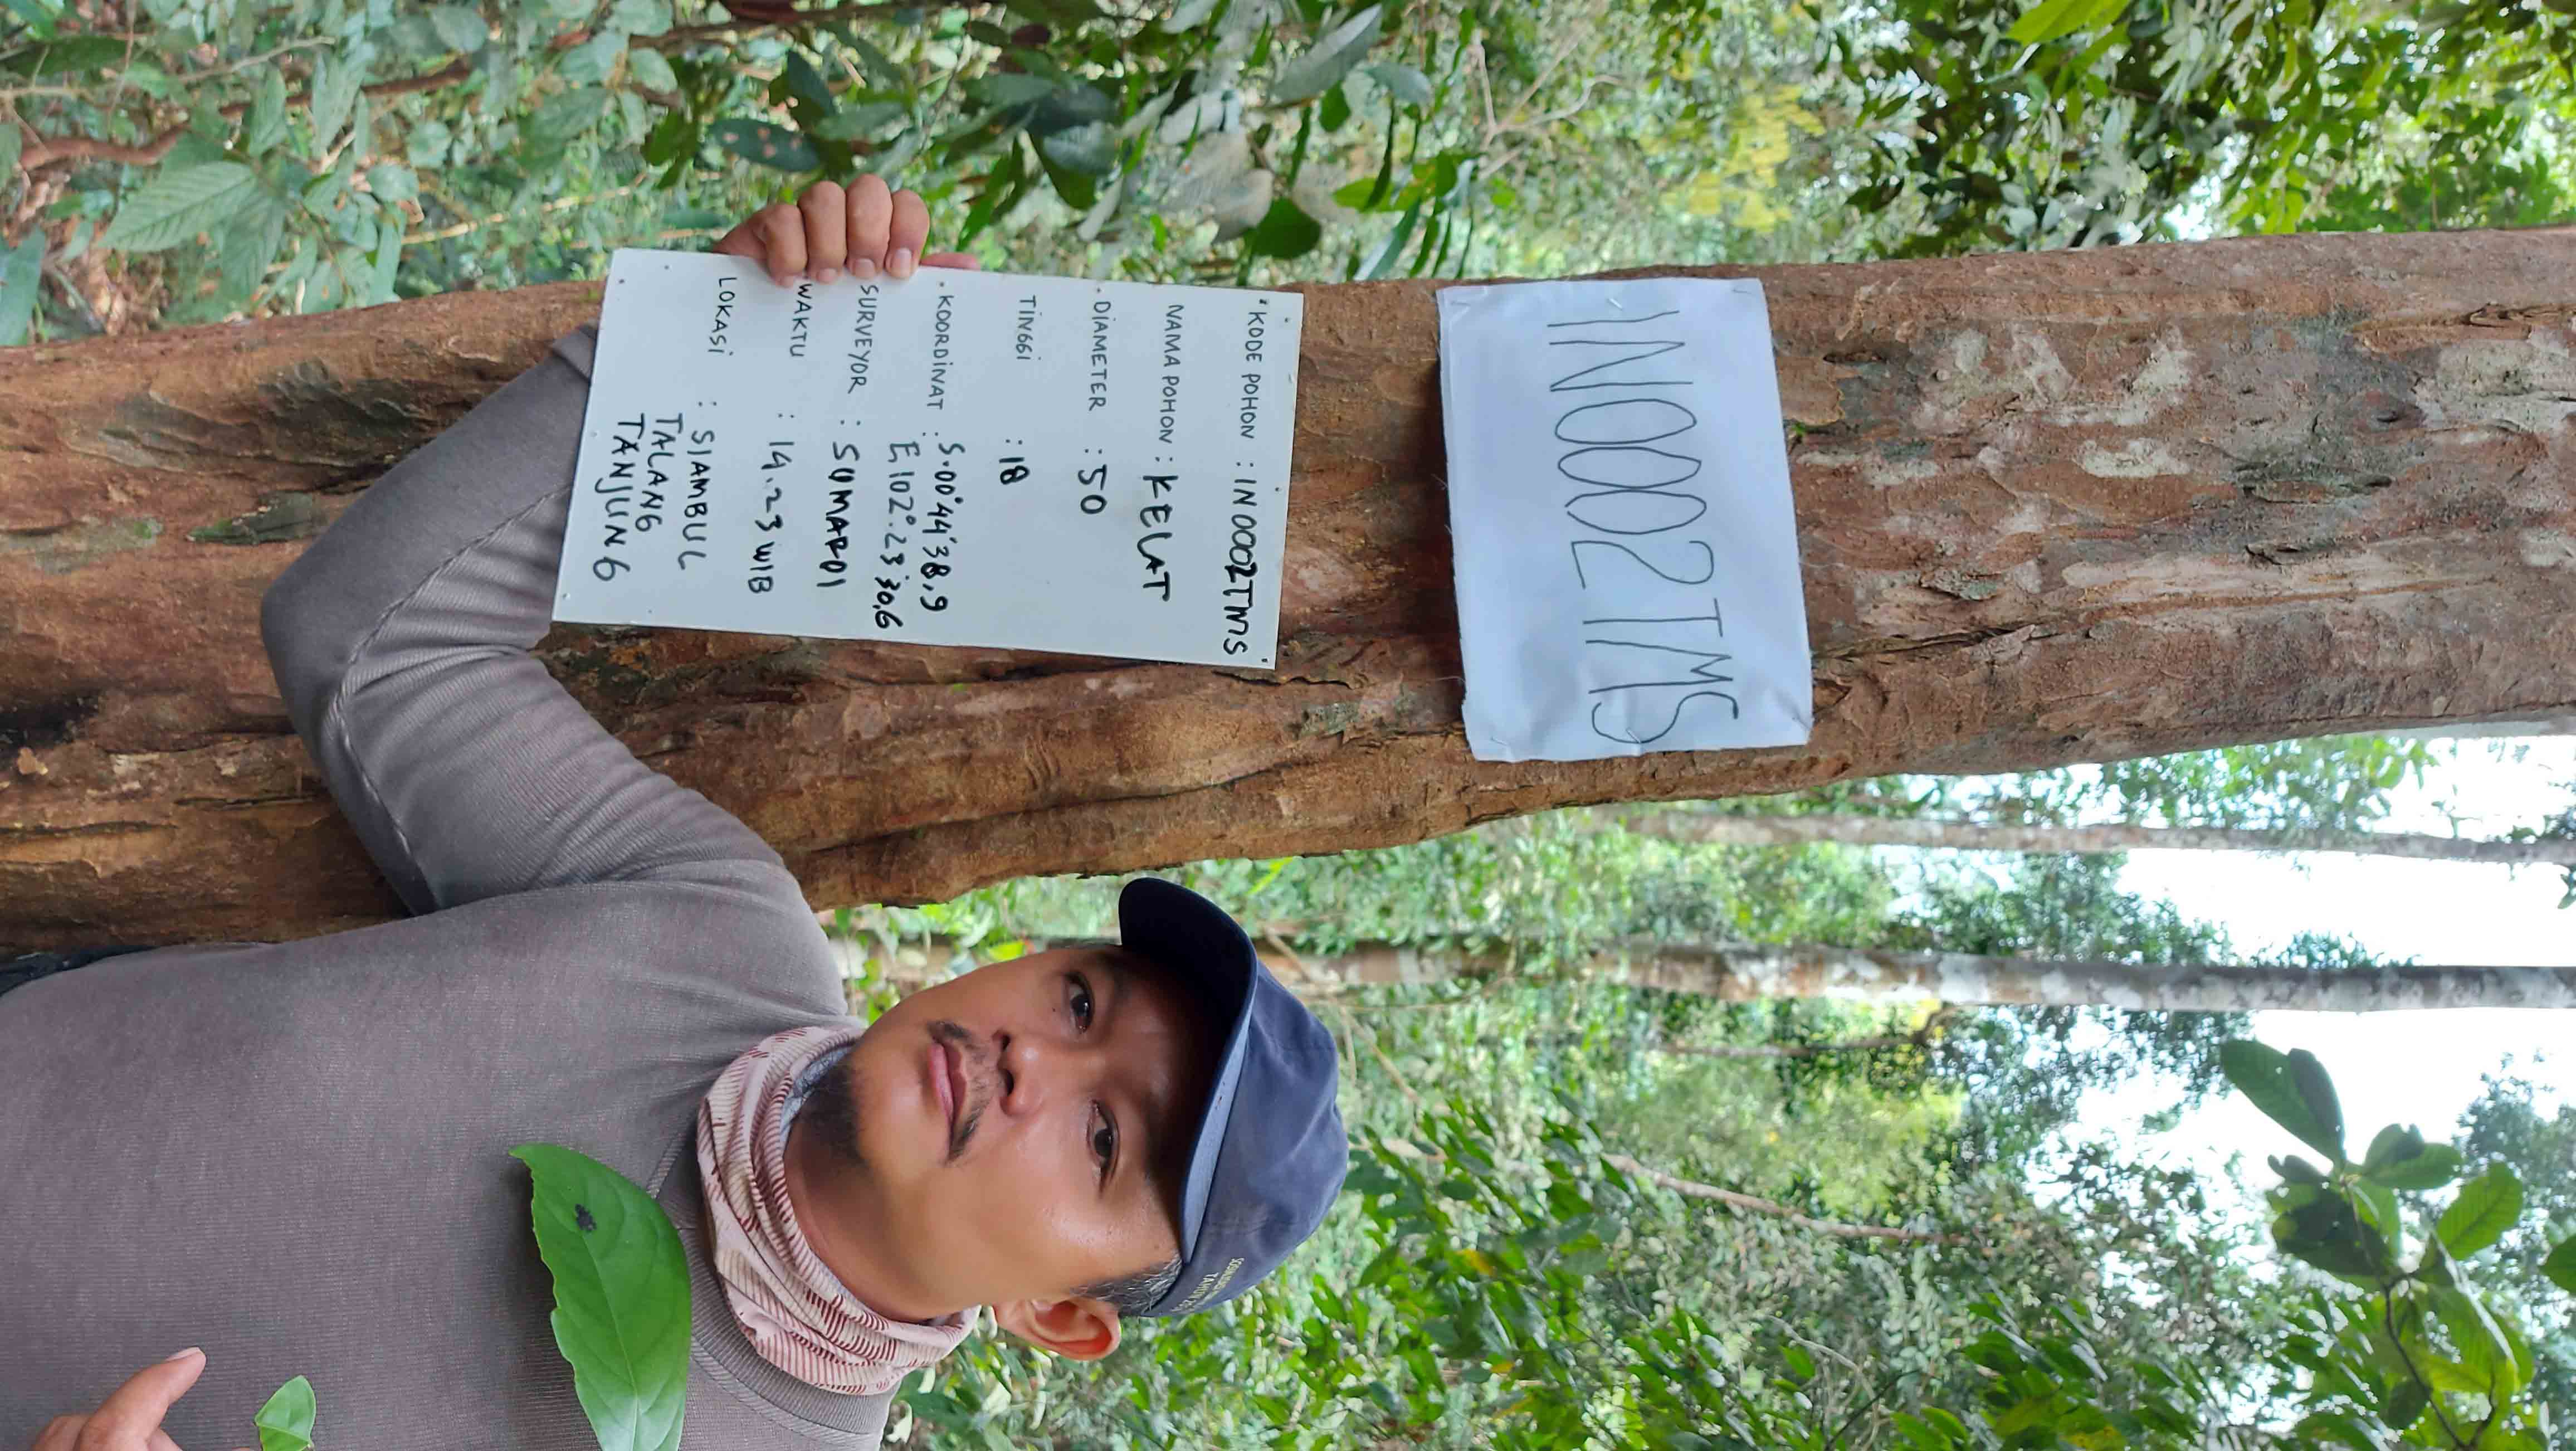 IN0002TMS
KODE POHON : IN0002TMS
NAMA POHON : KELAT
DIAMETER : 50
TINGGI : 18
KOORDINAT : S.00°44'38,9
E102°.23'30,6
SURVEYOR : SUMARDI
WAKTU : 14.23 WIB
LOKASI : SIAMBUL
TALANG
TANJUNG